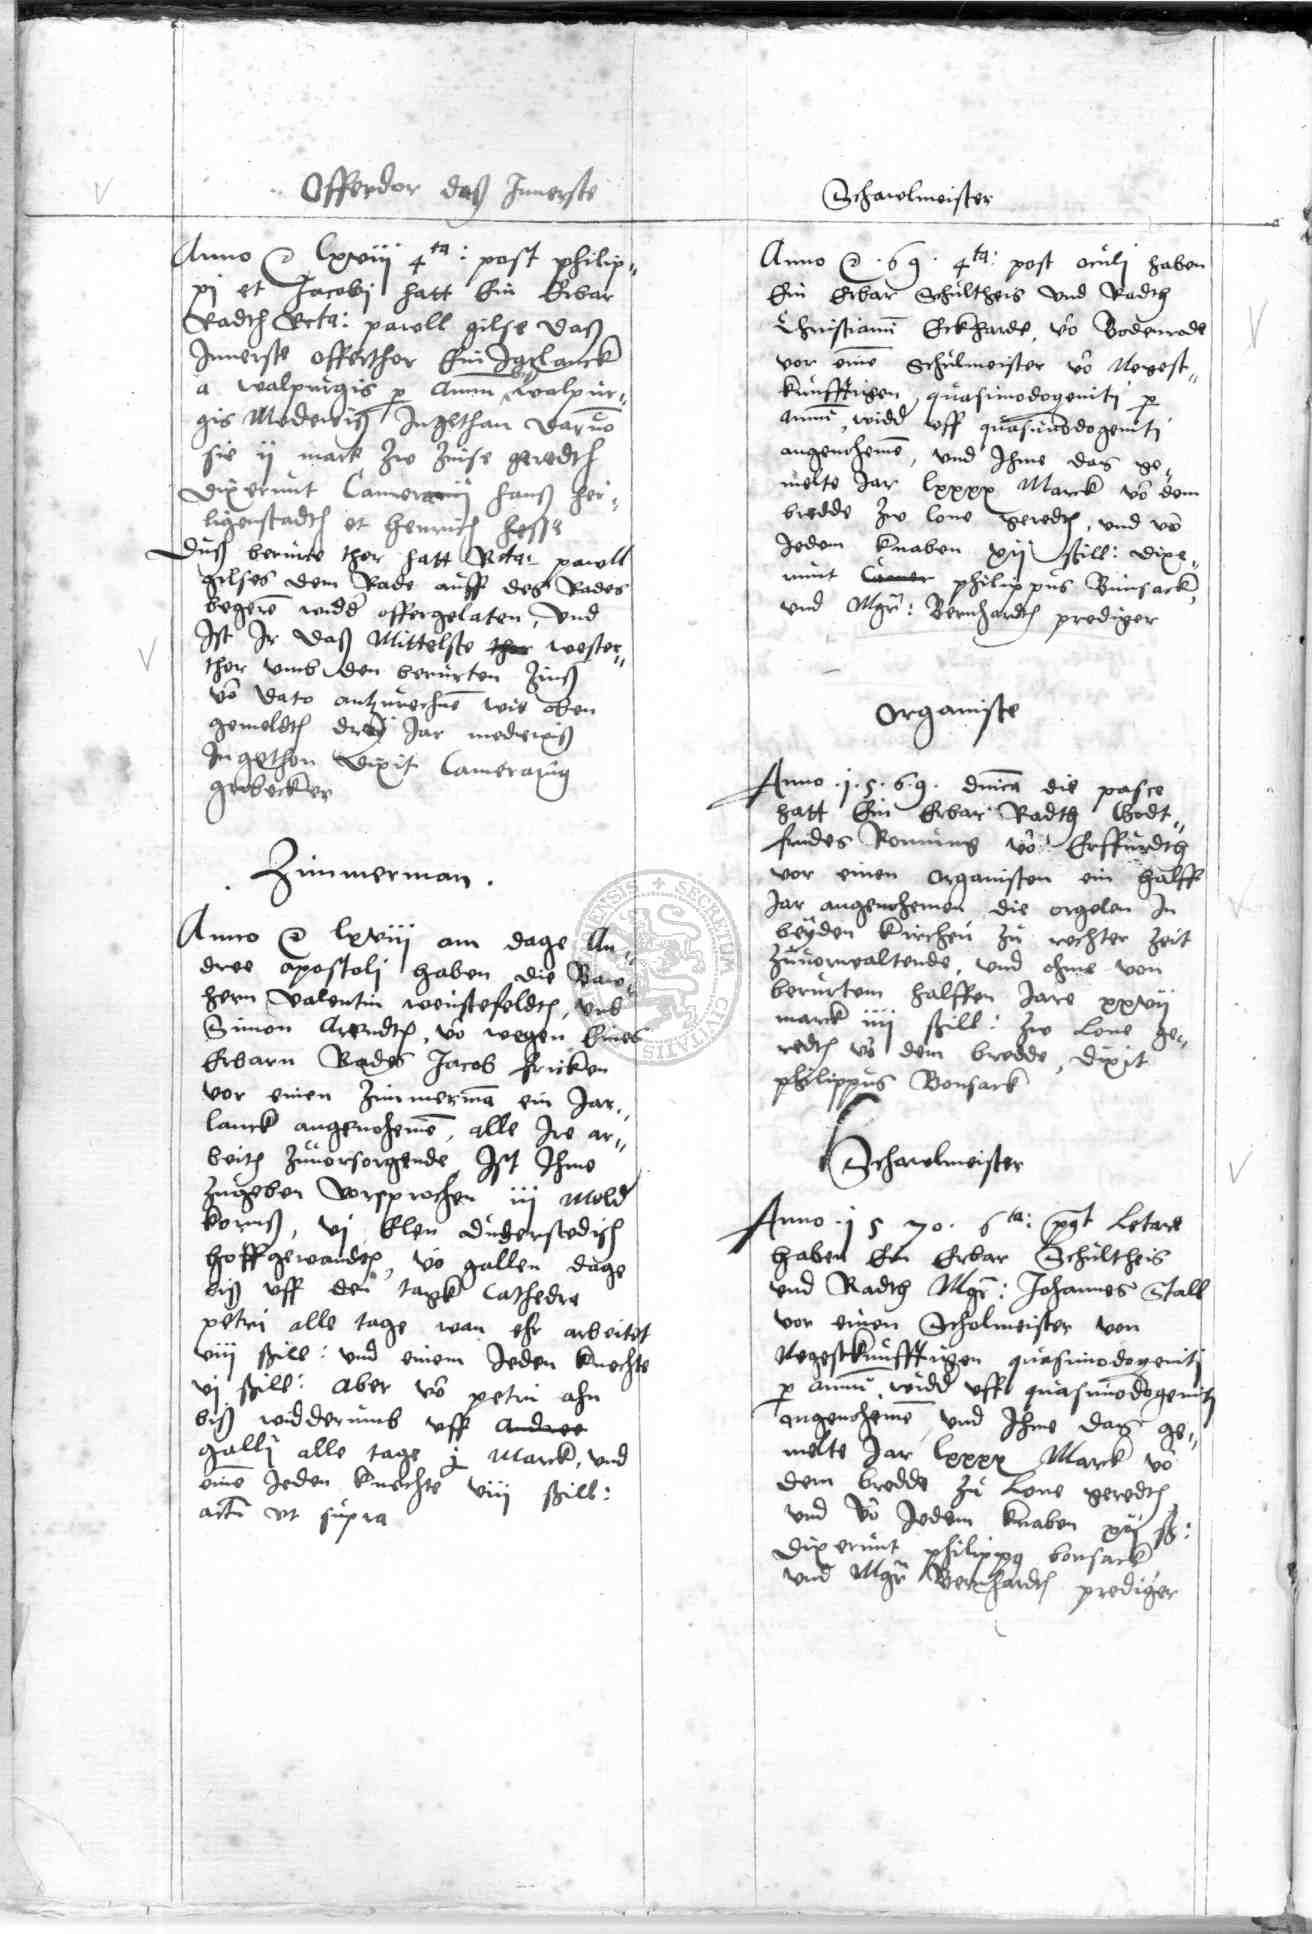 Offerdor daß Innerste
Anno &c lxviii 4ta: post philip-
pi et Jacobi hatt Ein Erbar
Radth Reta: pawell gilse daß
Innerste offerthor Ein Jarlanck
a walpurgis p annu bis walpur-
gis Mederviß Ingethan daruo
sie ii marck zw zinse geredth
dixerunt Camerarij hanß hei-
ligenstadth et henrich hesse
Duß berurte thor hatt Reta: pawell
gilses dem Rade auff des Rades
begere widd offergelaten, Und
Ist Ir daß Mittelste thor wester-
thor umb den berurten Zinß
vo dato antzurechne wie oben
gemeldth drey Jar mederviß
Ingethon dixit Camerarius
grobecker
Zimmerman.
Anno &c lxviii am dage An-
dree apostoli haben die Baw-
hern Valentin weustefeldth, und
Simon Arendth, vo wegen Eines
Erbarn Rades Jacob fricken
vor einen Zimmerma ein Jar-
lanck angenoheme, alle Ire ar-
beith zuuorsorgende Ist Ihme
zugeben vorsprochen iii Mold
kornß, vi Elen duderstedisch
hoffgewandth, vo gallen dage
biß uff den tagk Cathedra
petri alle tage wan ehr arbeitet
viii ßill: und einem Jeden knechte
vi ßill: aber vo petri ahn
biß widderumb uff Andree
galli alle tage j Marck, und
eine Jeden knechte viii ßill:
actu ut supra
Schawlmeister
Anno &c. 69. 4ta: post oculi haben
Ein Erbar Schultheis und Radth
Christianu Eckharde, vo Bodenrode
vor eine Schulmeister vo Negest-
kunfftigen, quasimodogeniti p
annu, widd uff quasimodogeniti
angenoheme, und Ihme das ge-
melte Jar lxxxx Marck vo dem
bredde zw lone geredth, und vo
Jedem knaben xii ßill: dixe-
runt Camer philippus Bunsack,
und Mgr: Bernhardth prediger
Organiste
Anno .1.5.6.9. dnica die pasce
hatt Ein Erbar Radth Godt-
frides Ronung vo Erffurdth
vor einen organisten ein halff
Jar angenohemen, die orgelen In
beyden kirchen zu rechter zeit
zuuorwaltende, und ohme von
berurtem halffen Jare xxvii
marck iiii ßill: zw Lone ge-
redth vo dem bredde, dixit
philippus Bonsack
Schawlmeister
Anno .1570. 6ta: post Letare
haben Ein Erbar Schultheis
und Radth Mgr: Johannes Stall
vor einen Scholmeister von
Negestkunfftigen quasimodogeniti
p annu, widd uff quasimodogeniti
angenoheme, und Ihme das ge-
melte Jar lxxxx Marck vo
dem bredde zu Lone geredth
und vo Jedem knaben xii ß:
dixerunt philippus bonsack
und Mgr Bernhardth prediger